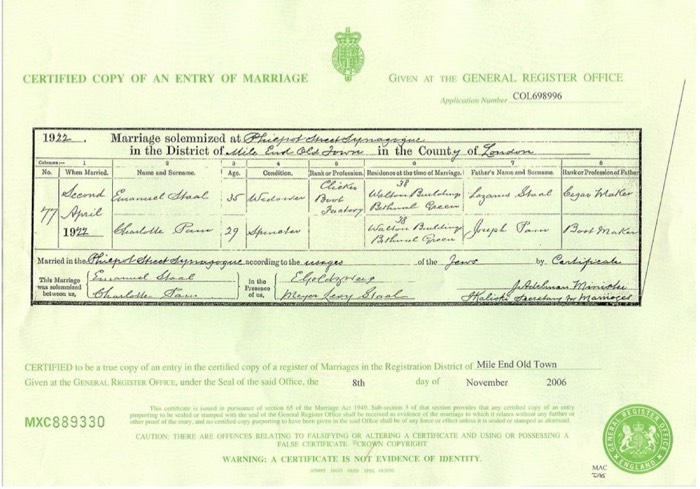 CERTIFIED COPY OF AN ENTRY OF MARRIAGE
GIVEN AT THE GENERAL REGISTER OFFICE
Application Number COL698996
1922. Marriage solemnized at Philpot Street Synagogue
in the District of Mile End Old Town in the County of London
Columns:— 1 2 3 4 5 6 7 8
No. When Married. Name and Surname. Age. Condition. Rank or Profession. Residence at the time of Marriage. Father's Name and Surname. Rank or Profession of Father
77 Second April 1922
Emanuel Staal 35 Widower Clicker Boot Factory 38 Walton Buildings Bethnal Green Lazarus Staal Cigar Maker
Charlotte Pam 29 Spinster 38 Walton Buildings Bethnal Green Joseph Pam Boot Maker
Married in the Philpot Street Synagogue according to the usages of the Jews by Certificate
This Marriage was solemnized between us, Emanuel Staal Charlotte Pam
in the Presence of us, Meyer Levy Staal
J. Adelman Minister
Secretary for Marriages
CERTIFIED to be a true copy of an entry in the certified copy of a register of Marriages in the Registration District of Mile End Old Town
Given at the GENERAL REGISTER OFFICE, under the Seal of the said Office, the 8th day of November 2006
MXC889330
This certificate is issued in pursuance of section 65 of the Marriage Act 1949. Sub-section 3 of that section provides that any certified copy of an entry
purporting to be sealed or stamped with the seal of the General Register Office shall be received as evidence of the marriage to which it relates without any further or
other proof of the entry, and no certified copy purporting to have been given in the said Office shall be of any force or effect unless it is sealed or stamped as aforesaid.
CAUTION: THERE ARE OFFENCES RELATING TO FALSIFYING OR ALTERING A CERTIFICATE AND USING OR POSSESSING A
FALSE CERTIFICATE. ©CROWN COPYRIGHT
WARNING: A CERTIFICATE IS NOT EVIDENCE OF IDENTITY.
GENERAL REGISTER OFFICE
ENGLAND
MAC